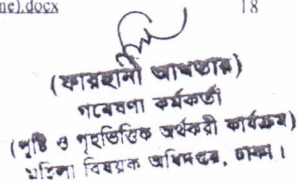 ne).docx 18
(ফারহানা আখতার)
গবেষণা কর্মকর্তা
(পুষ্টি ও গৃহভিত্তিক অর্থকরী কার্যক্রম)
মহিলা বিষয়ক অধিদপ্তর, ঢাকা।